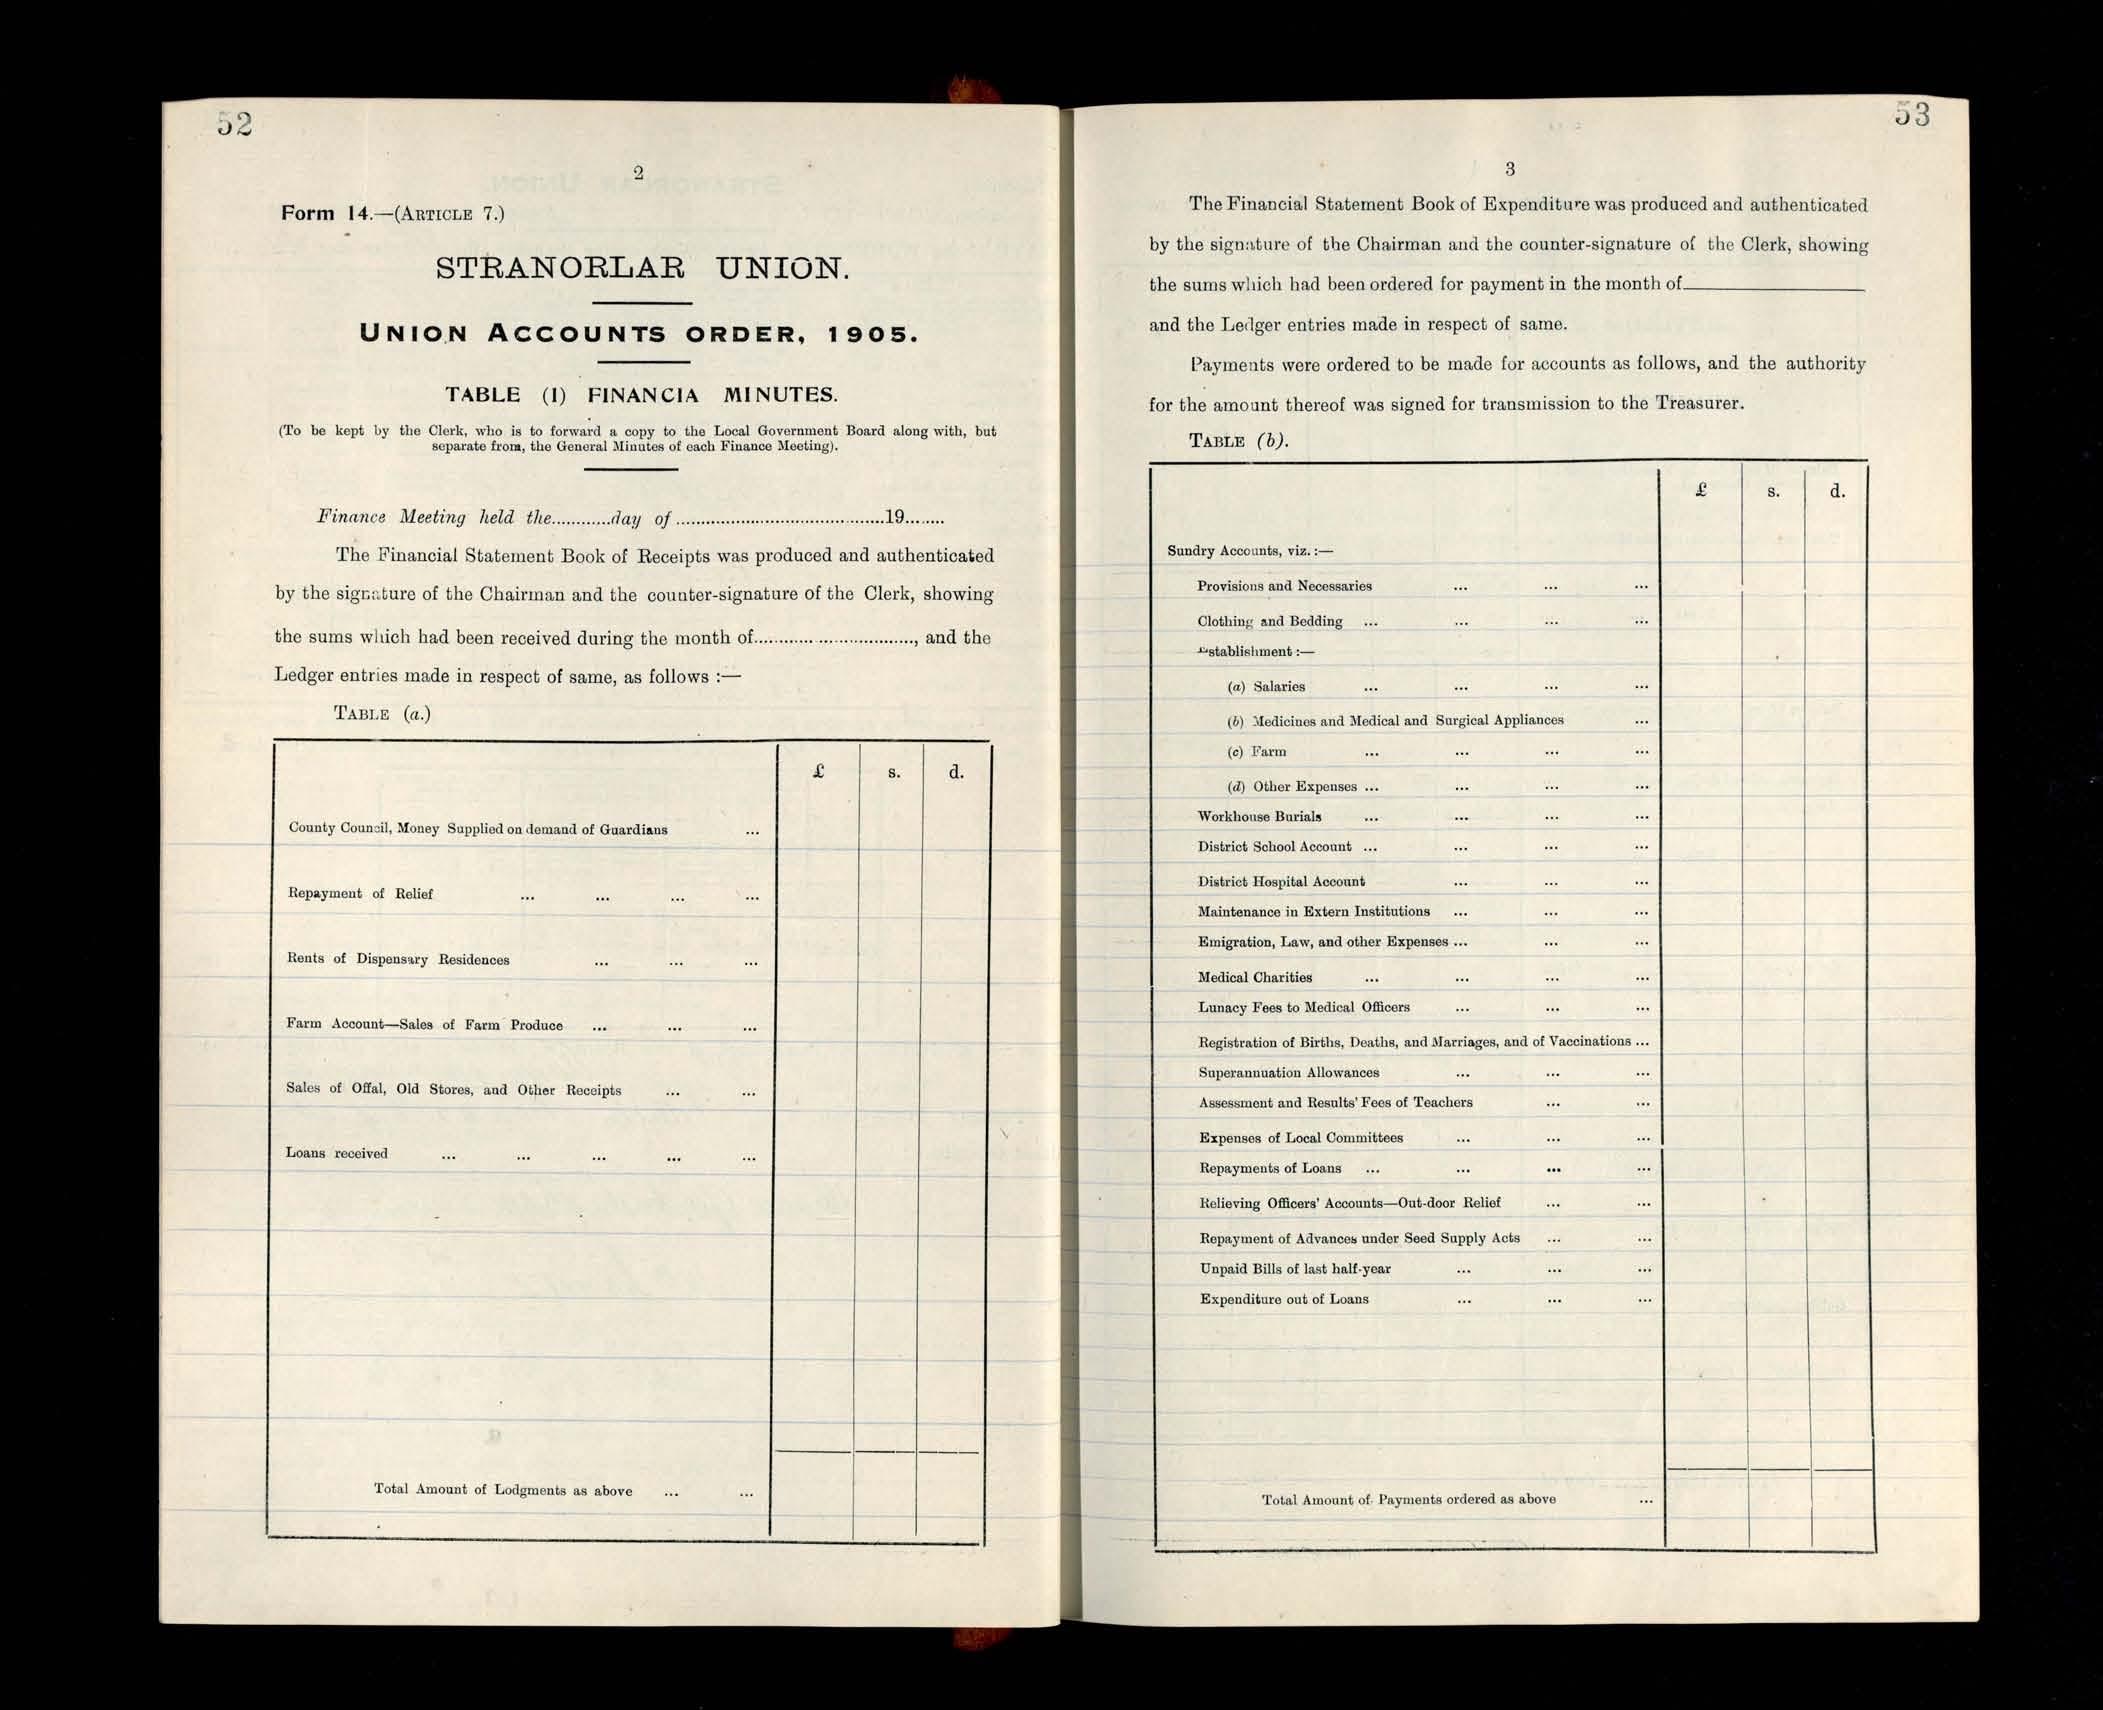 52
2
Form 14.—(ARTICLE 7.)
STRANORLAR UNION.
UNION ACCOUNTS ORDER, 1905.
TABLE (1) FINANCIA MINUTES.
(To be kept by the Clerk, who is to forward a copy to the Local Government Board along with, but
separate from, the General Minutes of each Finance Meeting).
Finance Meeting held the............day of ..........................................19........
The Financial Statement Book of Receipts was produced and authenticated
by the signature of the Chairman and the counter-signature of the Clerk, showing
the sums which had been received during the month of................................, and the
Ledger entries made in respect of same, as follows :—
TABLE (a.)
£ s. d.
County Council, Money Supplied on demand of Guardians ...
Repayment of Relief ... ... ... ...
Rents of Dispensary Residences ... ... ...
Farm Account—Sales of Farm Produce ... ... ...
Sales of Offal, Old Stores, and Other Receipts ... ...
Loans received ... ... ... ... ...
Total Amount of Lodgments as above ... ...
53
3
The Financial Statement Book of Expenditure was produced and authenticated
by the signature of the Chairman and the counter-signature of the Clerk, showing
the sums which had been ordered for payment in the month of
and the Ledger entries made in respect of same.
Payments were ordered to be made for accounts as follows, and the authority
for the amount thereof was signed for transmission to the Treasurer.
TABLE (b).
£ s. d.
Sundry Accounts, viz. :—
Provisions and Necessaries ... ... ...
Clothing and Bedding ... ... ... ...
Establishment :—
(a) Salaries ... ... ... ...
(b) Medicines and Medical and Surgical Appliances ...
(c) Farm ... ... ... ...
(d) Other Expenses ... ... ... ...
Workhouse Burials ... ... ... ...
District School Account ... ... ... ...
District Hospital Account ... ... ...
Maintenance in Extern Institutions ... ... ...
Emigration, Law, and other Expenses ... ... ...
Medical Charities ... ... ... ...
Lunacy Fees to Medical Officers ... ... ...
Registration of Births, Deaths, and Marriages, and of Vaccinations ...
Superannuation Allowances ... ... ...
Assessment and Results' Fees of Teachers ... ...
Expenses of Local Committees ... ... ...
Repayments of Loans ... ... ... ...
Relieving Officers' Accounts—Out-door Relief ... ...
Repayment of Advances under Seed Supply Acts ... ...
Unpaid Bills of last half-year ... ... ...
Expenditure out of Loans ... ... ...
Total Amount of Payments ordered as above ...